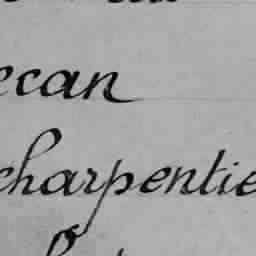 ecan
charpentie